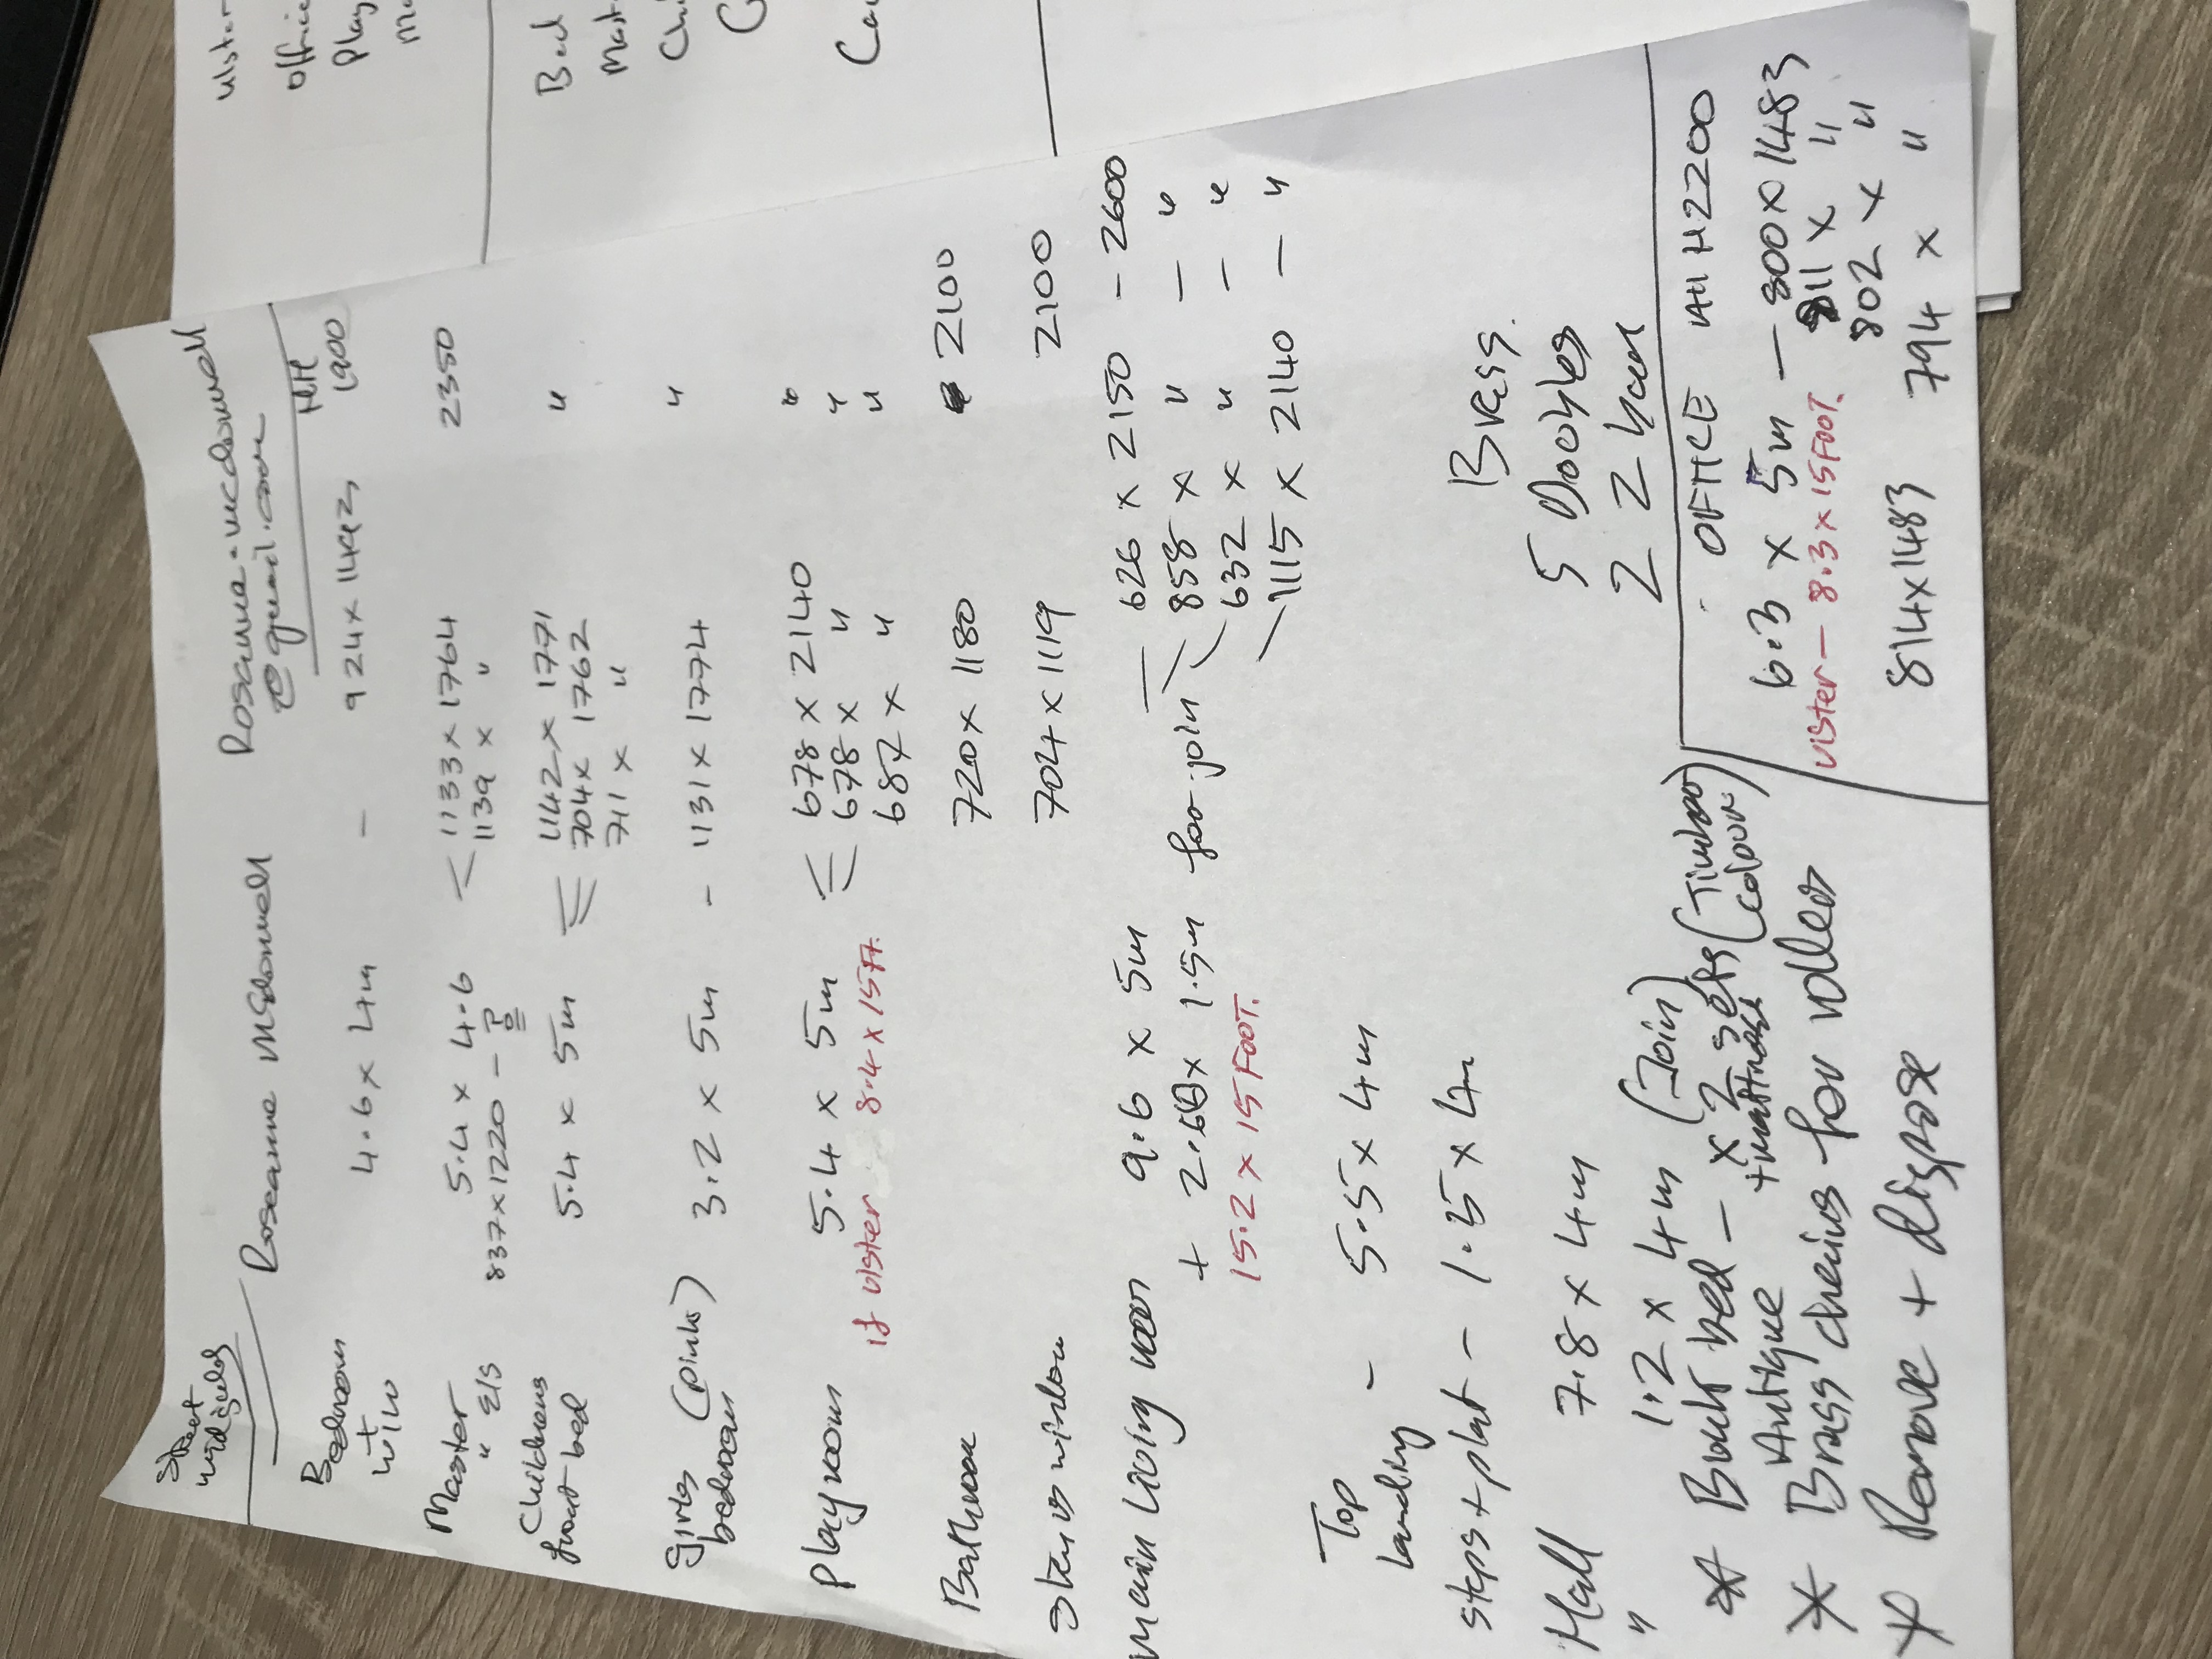 Street
widgeley
Roseanne McDonnell
Roseanne.mcdonnell
@gmail.com
Bedroom 4.6 x 4m - 924 x 1442,
1900
Master 5.4 x 4.6 1133 x 1764 2350
" E/S 837 x 1220 - 1139 x "
Childrens 5.4 x 5m 1142 x 1771 "
front bed 704 x 1762
711 x "
Girls (pink) 3.2 x 5m - 1131 x 1774 "
bedroom
Playroom 5.4 x 5m 678 x 2140 "
678 x " "
687 x " "
if ulster 8.4 x 15Ft.
Bathroom 720 x 1180 2100
Stairs window 704 x 1119 2100
Main Living room 9.6 x 5m 626 x 2150 - 2600
+ x 1.5m for join 858 x " - "
632 x " - "
15.2 x 15 FOOT. 1115 x 2140 - "
Top - 5.5 x 4m
Landing
steps + plat - x 4m
Hall 7.8 x 4m
" 1.2 x 4m (Join)
Brass.
5 Doubles
2
OFFICE All H2200
6.3 x 5m - 800 x 1483
ulster - 8.3 x 15 FOOT. 811 x "
802 x "
814 x 1483 794 x "
* Bunk bed - x 2 sets (Timber
+ mattress colour)
Antique
* Brass for
* Remove + dispose
ulster
Office
Play
Bed